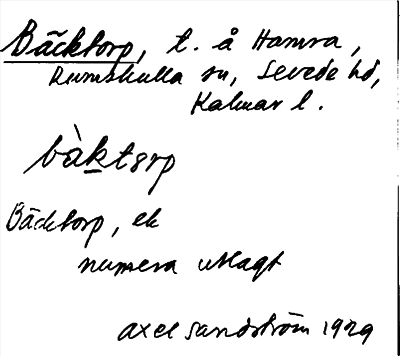 Bäcktorp, t. å Hamra,
Rumskulla sn, Sevede hd,
Kalmar l.
bàktorp
Bäcktorp, ek
numera utlagt
Axel Sandström 1929